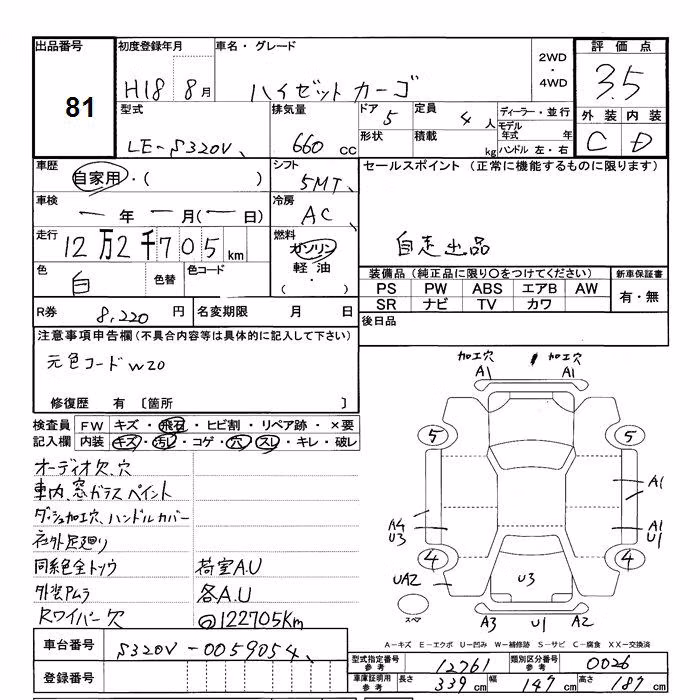 出品番号 81
初度登録年月 H18 8月
車名・グレード ハイゼット カーゴ
2WD・4WD
評価点 3.5
外装 C 内装 D
型式 LE-S320V
排気量 660 CC
ドア 5
形状
定員 4人
積載 kg
ディーラー・並行
モデル年式 年
ハンドル 左・右
車歴 自家用・( )
シフト 5MT
セールスポイント (正常に機能するものに限ります)
自走出品
車検 ー年ー月(ー日)
冷房 AC
走行 12万2千705km
燃料 ガソリン 軽油 ( ・ )
色 白 色替 色コード
装備品 (純正品に限り○をつけてください)
新車保証書 有・無
PS PW ABS エアB AW
SR ナビ TV カワ
R券 8,220円
名変期限 月 日
後日品
注意事項申告欄 (不具合内容等は具体的に記入して下さい)
元色コード W20
修復歴 有〔箇所 〕
検査員記入欄
FW キズ・飛石・ヒビ割・リペア跡・×要
内装 キズ・汚レ・コゲ・穴・スレ・キレ・破レ
オーディオ欠、穴
車内、窓ガラスペイント
ダッシュ加工穴、ハンドルカバー
社外足廻り
同系色全トソウ
荷室A.U
外装ムラ
各A.U
Rワイパー欠
@122705Km
加工穴 A1
加工穴 A1
5
5
A1
A4 U3
A1 U1
4
4
UA2
U3
スペア
A3 U1 A2
A-キズ E-エクボ U-凹み W-補修跡 S-サビ C-腐食 XX-交換済
車台番号 S320V-0059054
登録番号
型式指定番号 参考 12761
類別区分番号 参考 0026
車庫証明用 参考 長さ 339cm 幅 147cm 高さ 187cm